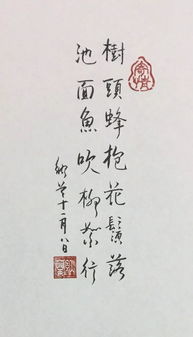 樹頭蜂抱花鬚落
池面魚吹柳絮行
十二月八日